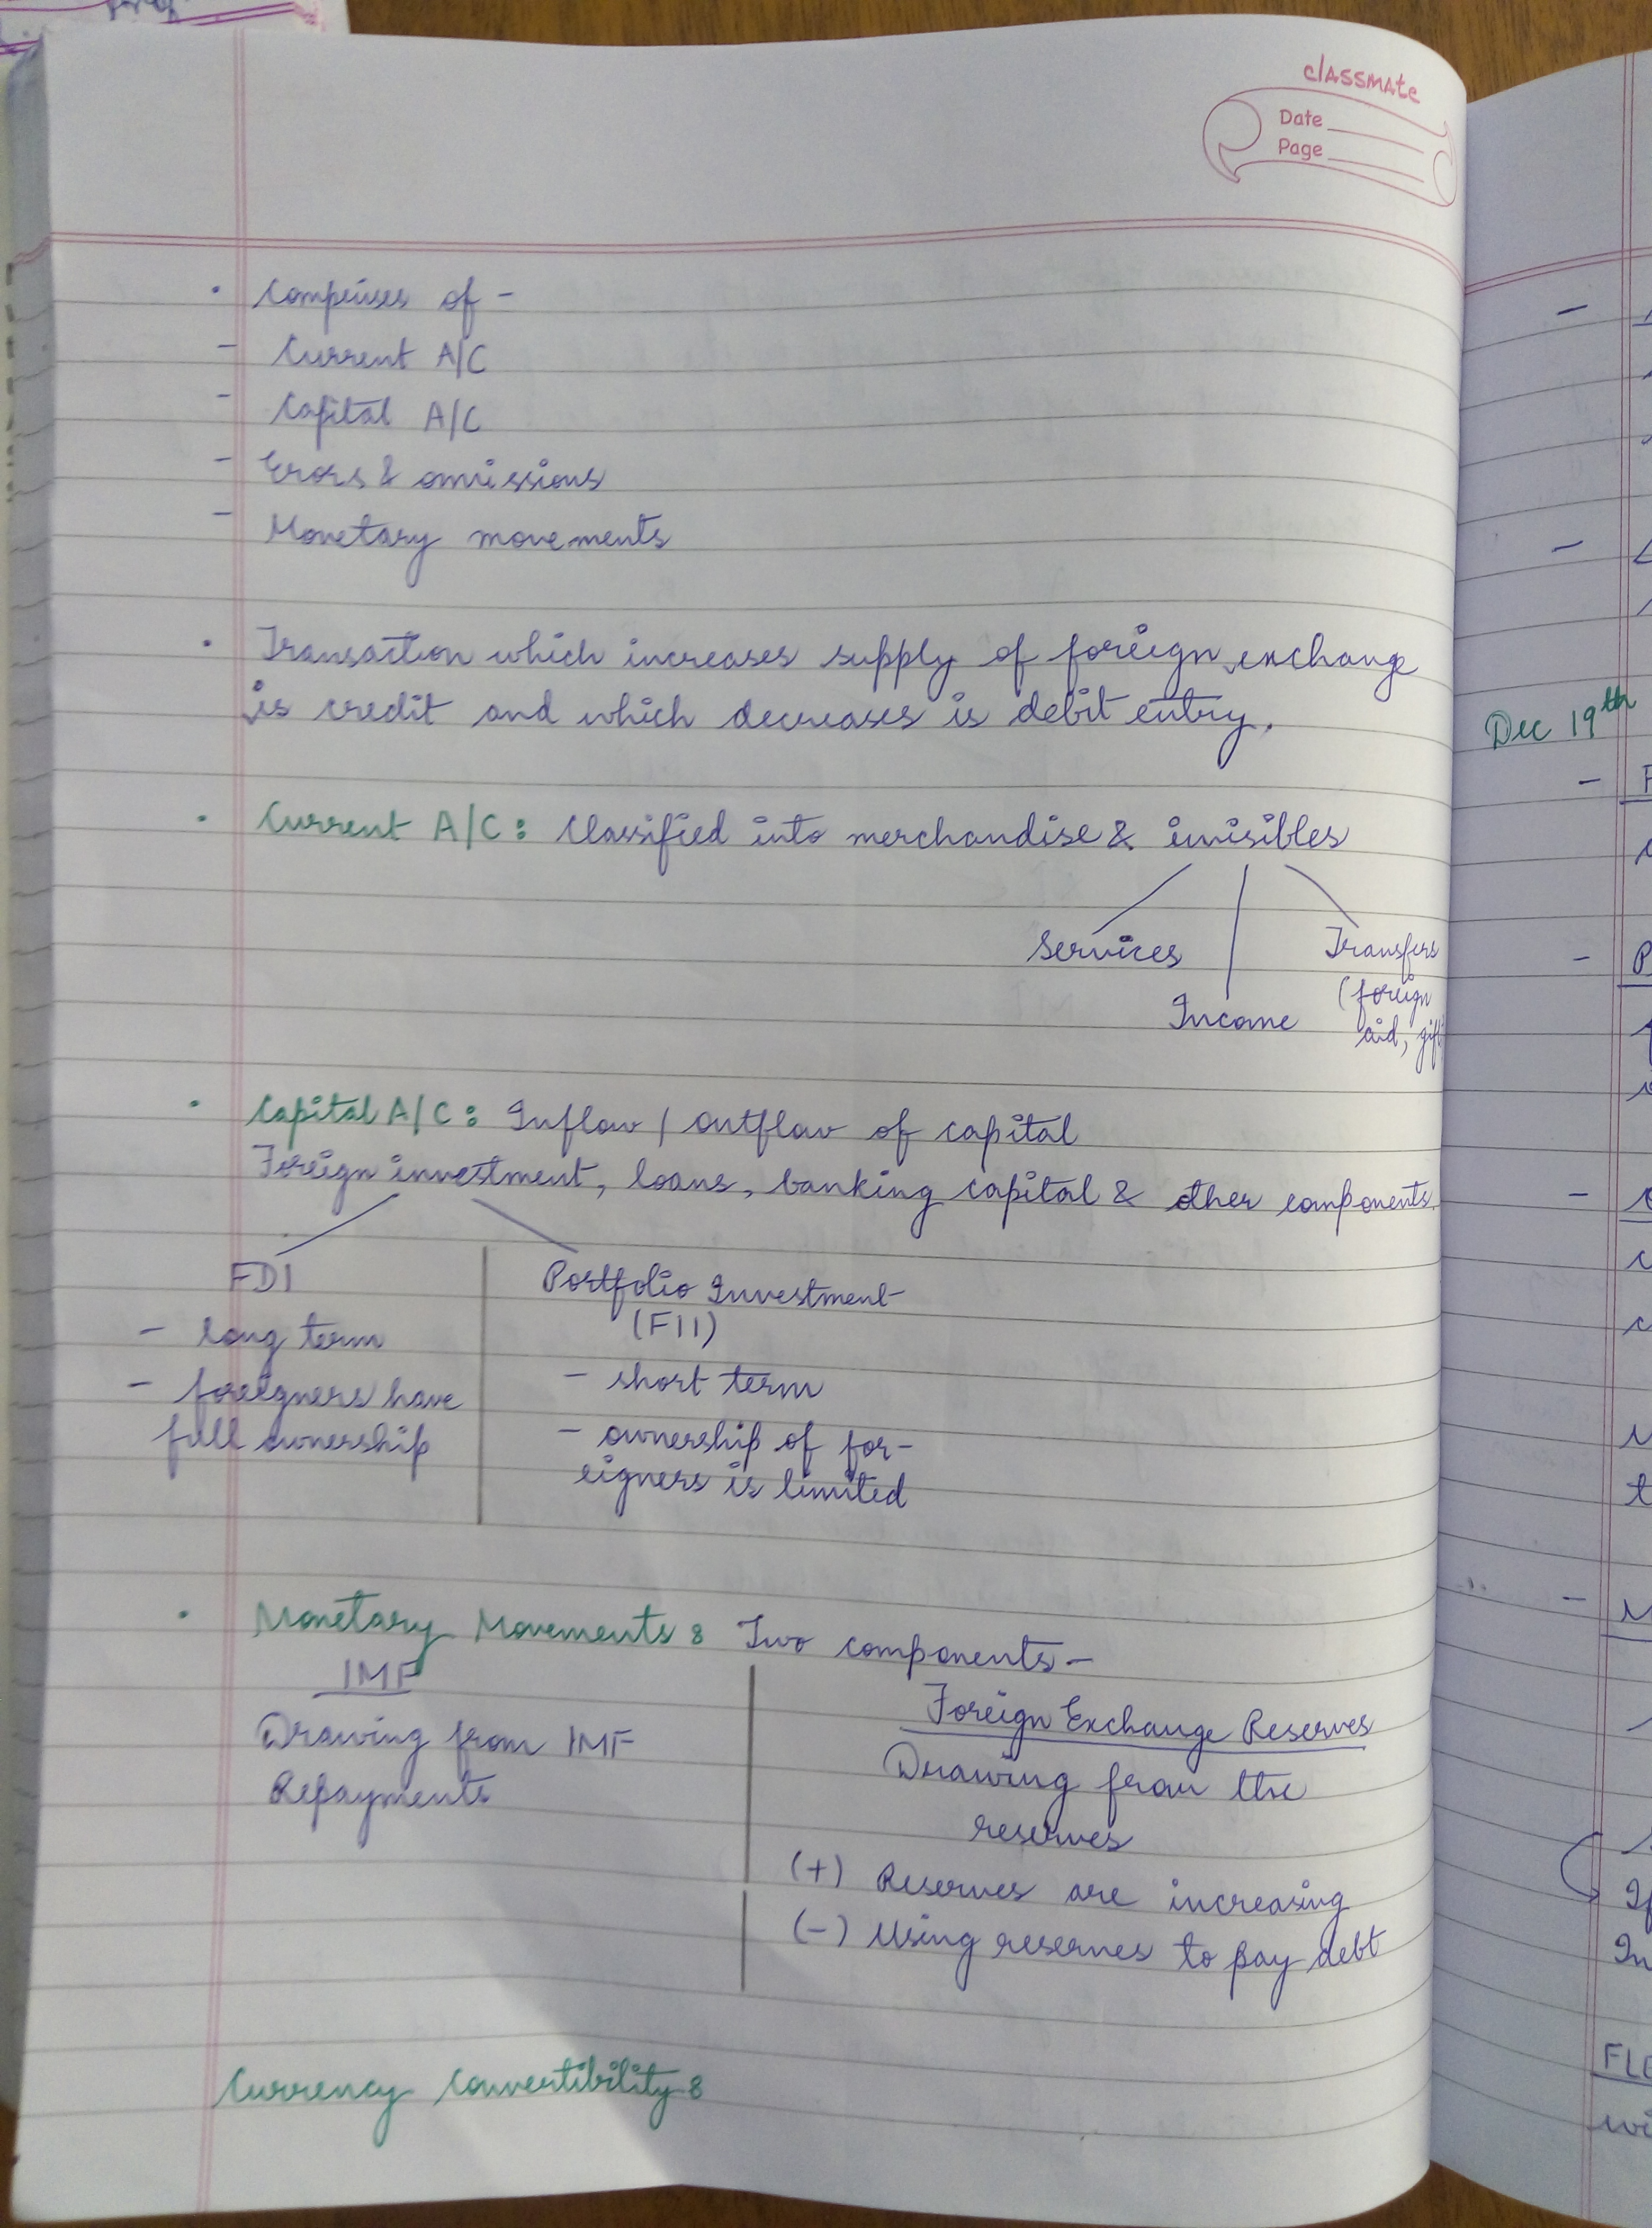 classmate
Date
Page
• Comprises of -
- Current A/C
- Capital A/C
- Errors & omissions
- Monetary movements
• Transaction which increases supply of foreign exchange
is credit and which decreases is debit entry.
• Current A/C: Classified into merchandise & invisibles
Services
Transfers
(foreign
Income
aid, gift
• Capital A/C: Inflow / outflow of capital
Foreign investment, loans, banking capital & other components.
FDI
- long term
- foreigners have
full ownership
Portfolio Investment
(FII)
- short term
- ownership of for-
eigners is limited
• Monetary Movements: Two components -
IMF
Drawing from IMF
Repayments
Foreign Exchange Reserves
Drawing from the
reserves
(+) Reserves are increasing
(-) Using reserves to pay debt
Currency Convertibility:
Dec 19th